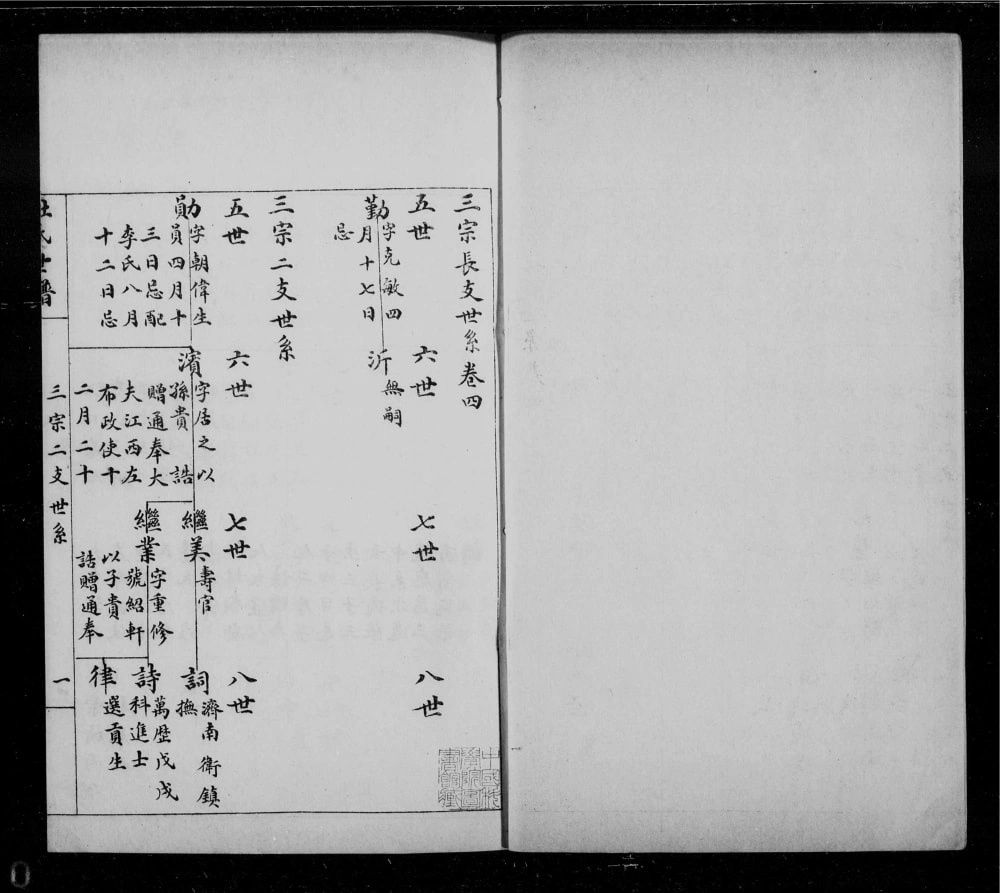 三宗長支世系卷四
五世 六世 七世 八世
勤 字克敏四
月十七日
忌
沂 無嗣
三宗二支世系
五世 六世 七世 八世
勛 字朝偉生
員四月十
三日忌配
李氏八月
十二日忌
濱 字居之以
孫貴 誥
贈通奉大
夫江西左
布政使十
二月二十
繼美 壽官
繼業 字重修
號紹軒
以子貴
誥贈通奉
詞 濟南衛鎮
撫
詩 萬歷戊戌
科進士
律 選貢生
杜氏世譜
三宗二支世系
一